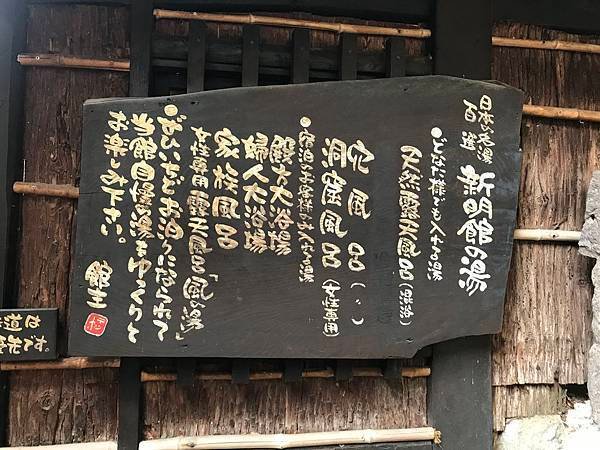 日本の名湯
百選
新明館の湯
●どなた様でも入れる湯
天然露天風呂(混浴)
穴風呂(〃)
洞窟風呂(女性専用)
●宿泊のお客様のみ入れる湯
殿方大浴場
婦人大浴場
家族風呂
女性専用露天風呂「風の湯」
●ぜひいちどお泊りになられて
当館自慢の湯をゆっくりと
お楽しみ下さい。
館主
道は
です。